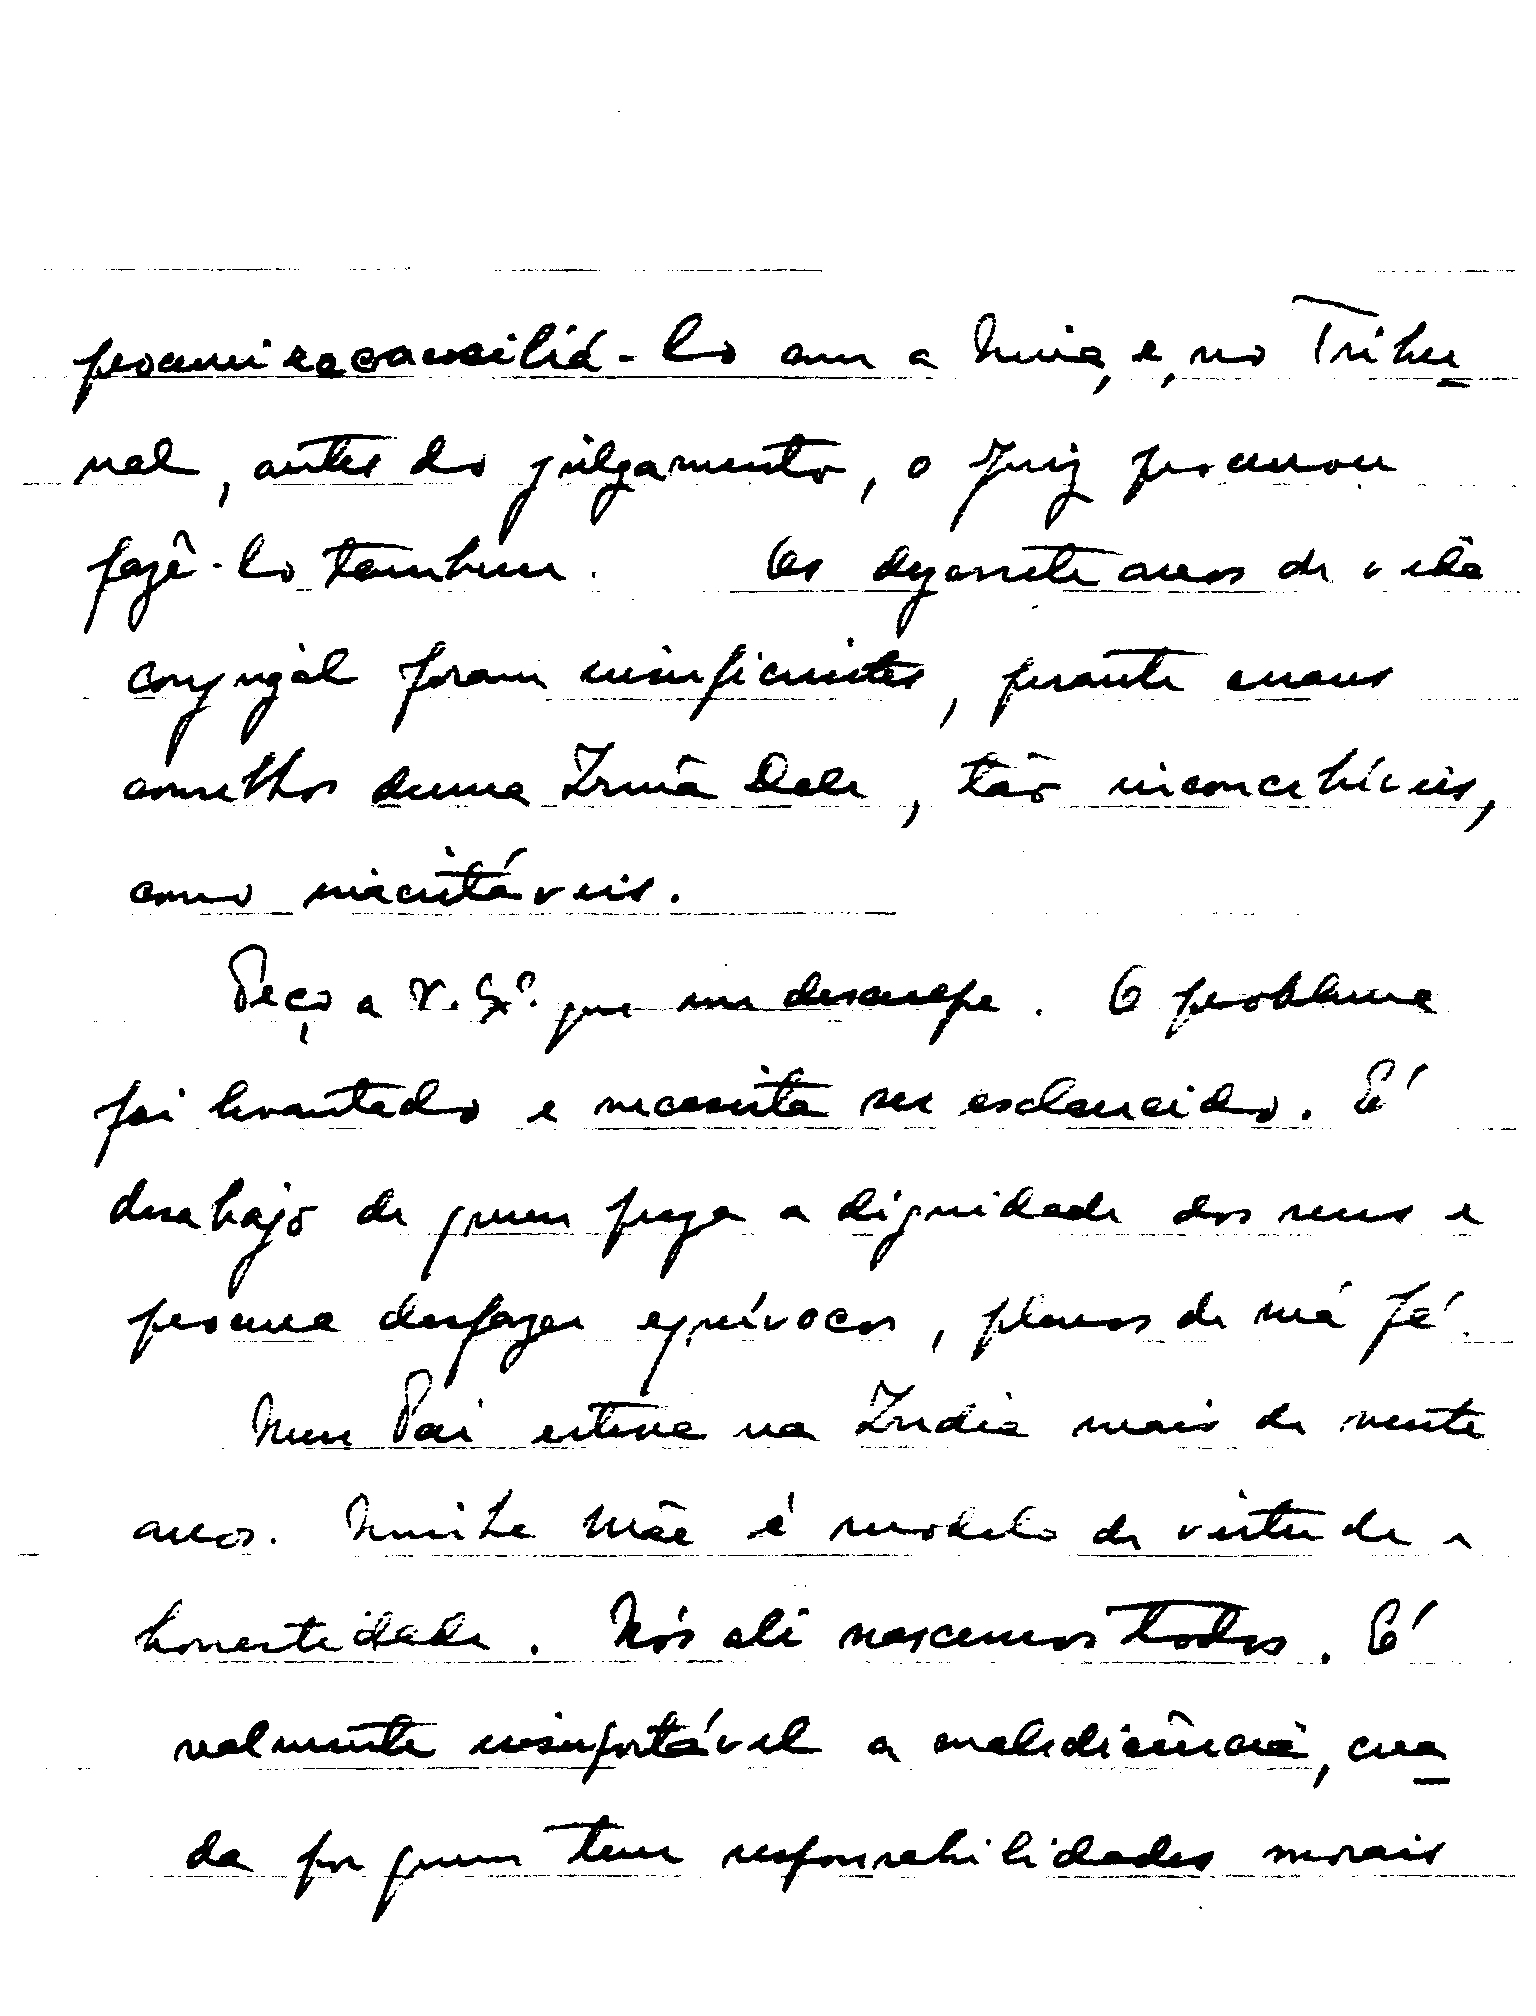 procurei reconciliá-lo com a Nina, e, no Tribu
nal, antes do julgamento, o Juiz procurou
fazê-lo tambem. Os dezassete anos de vida
conjugal foram insuficientes, perante maus
conselhos duma Irmã dele, tão inconcebíveis,
como inacreitáveis.
Peço a V. Exª. que me desculpe. O problema
foi levantado e necessita ser esclarecido. É
desabafo de quem preza a dignidade dos seus e
procura desfazer equívocos, planos de má fé.
Meu Pai esteve na India mais de vinte
anos. Minha Mãe é modelo de virtude e
honestidade. Nós ali nascemos todos. É
realmente insuportável a maledicência, cria
da por quem tem responsabilidades morais